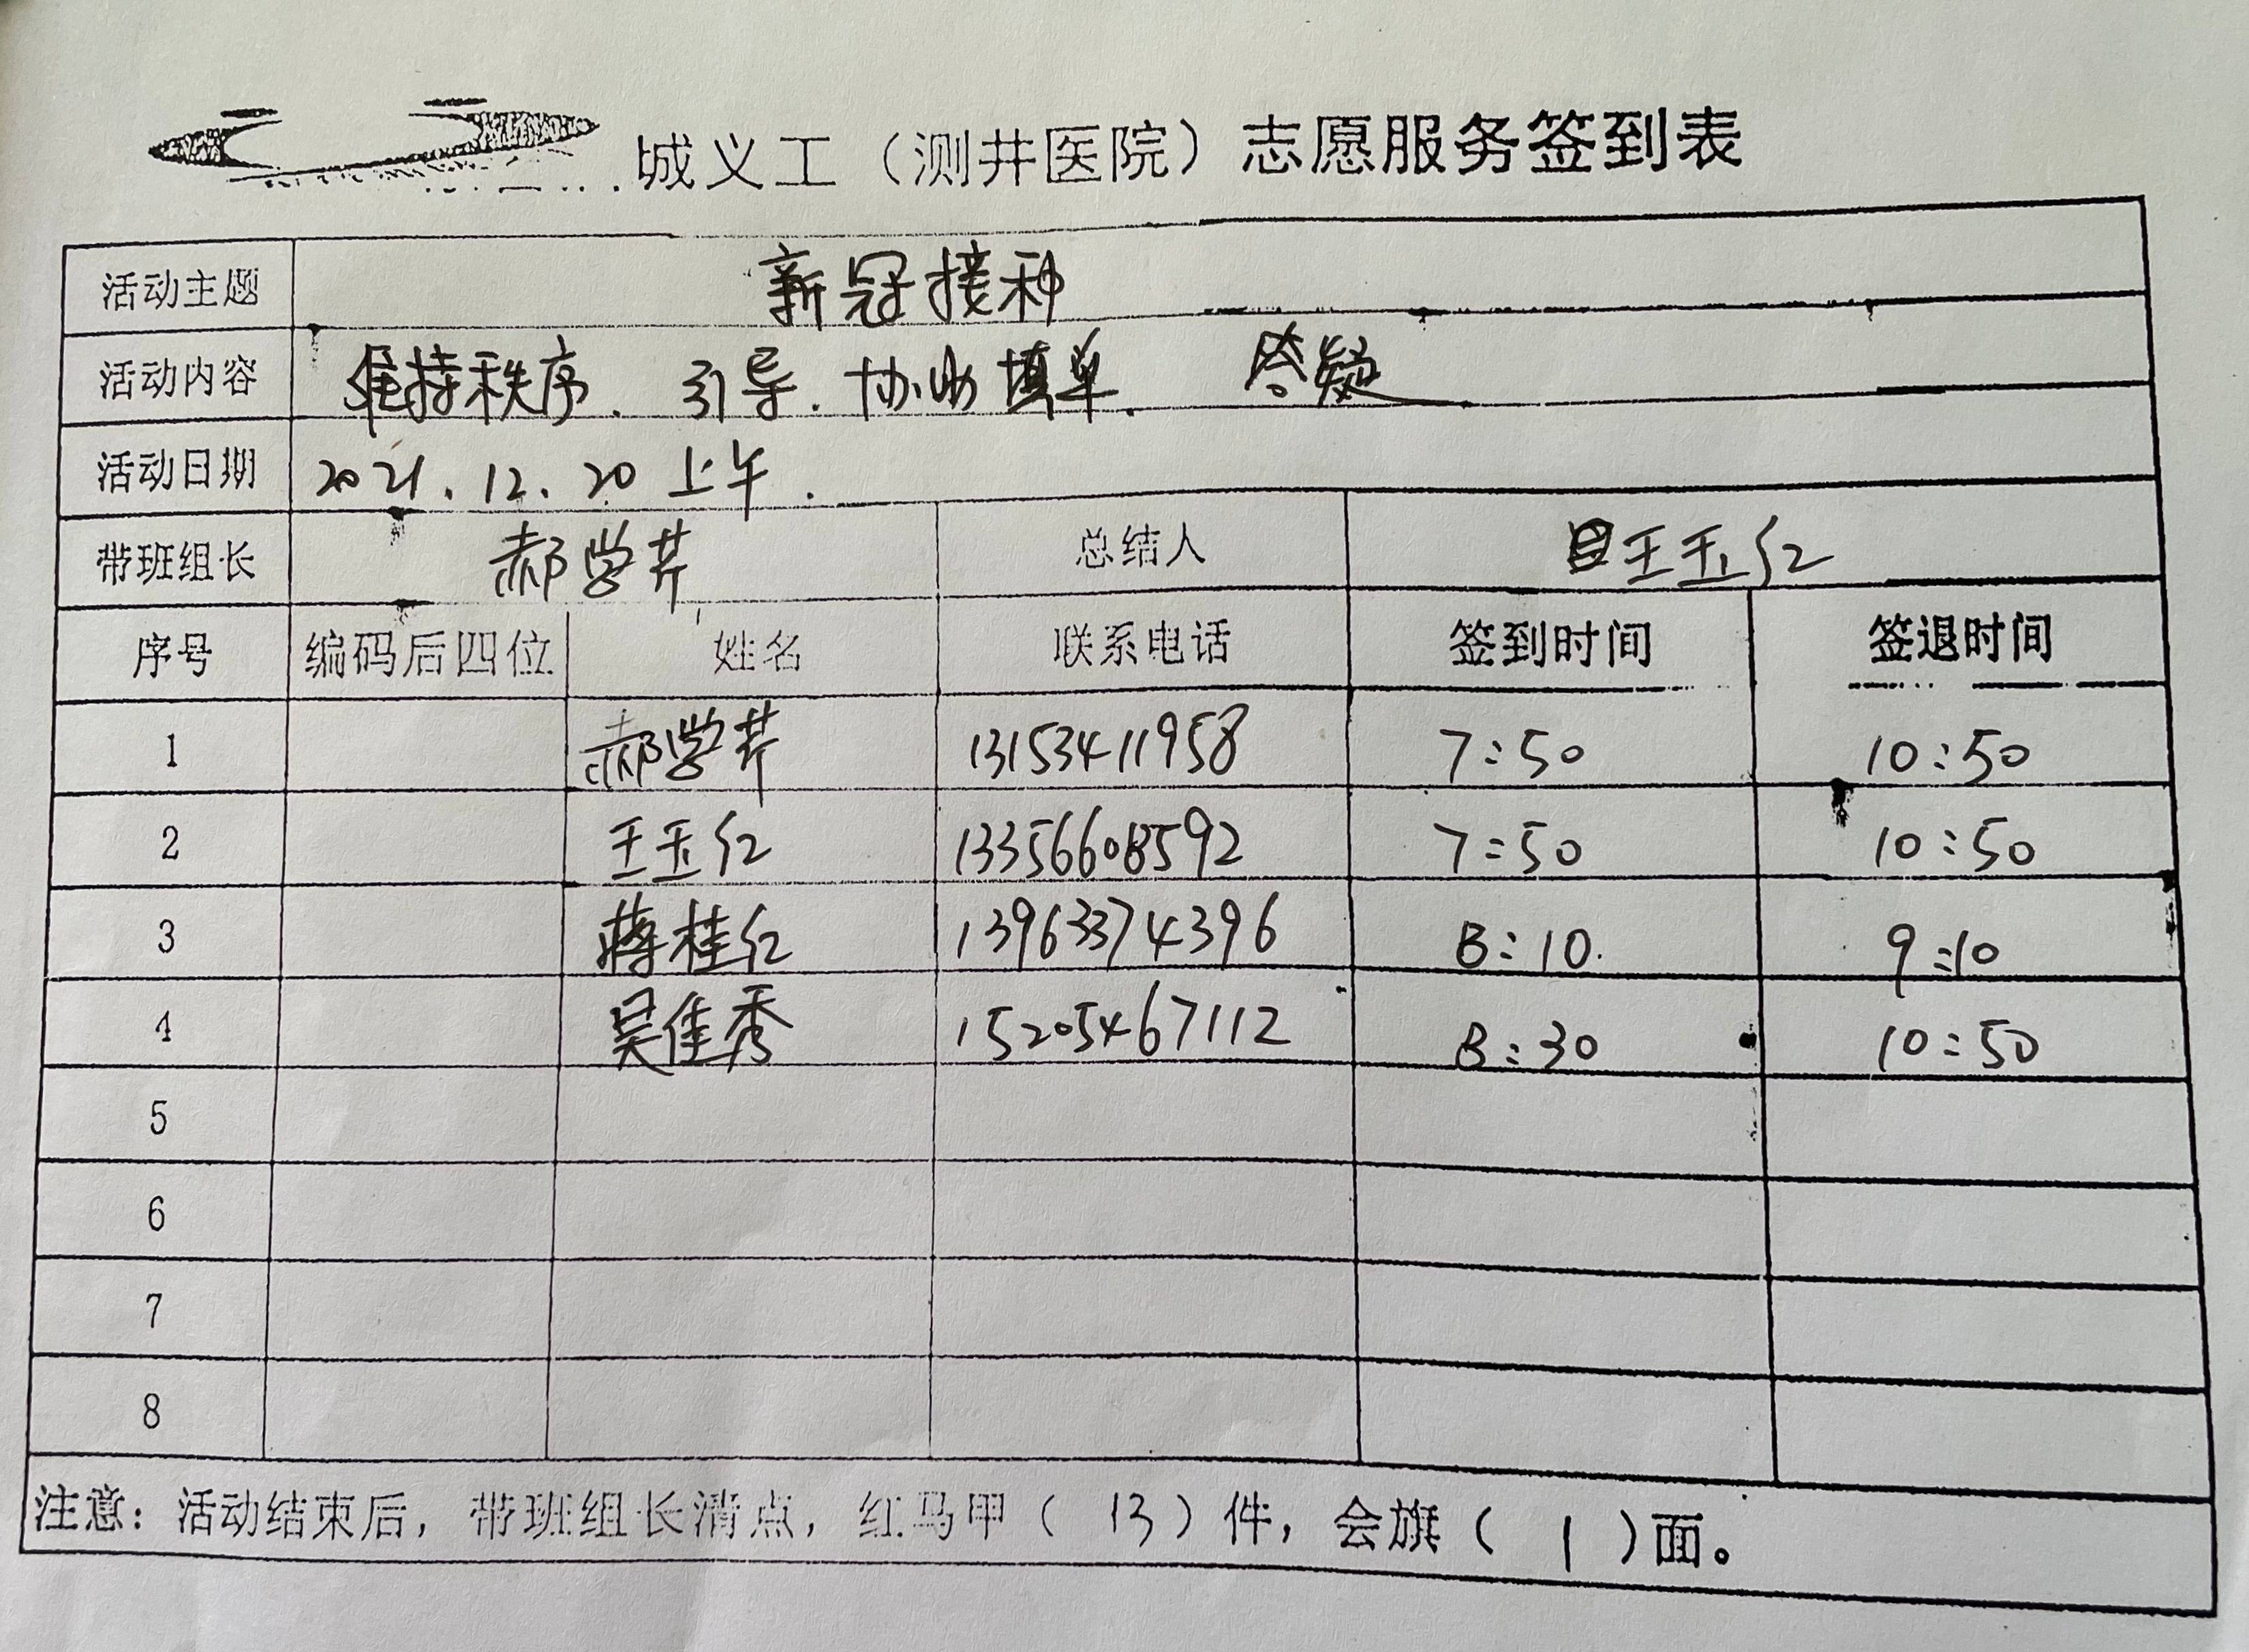 城义工（测井医院）志愿服务签到表
活动主题 新冠接种
活动内容 维持秩序、引导、协助填单、答疑
活动日期 2021.12.20 上午.
带班组长 郝学芹 总结人 王玉红
序号 编码后四位 姓名 联系电话 签到时间 签退时间
1 郝学芹 13153411958 7:50 10:50
2 王玉红 13356608592 7:50 10:50
3 蒋桂红 13963374396 8:10. 9:10
4 吴佳秀 15205467112 8:30 10:50
5
6
7
8
注意：活动结束后，带班组长清点，红马甲（ 13 ）件，会旗（ 1 ）面。